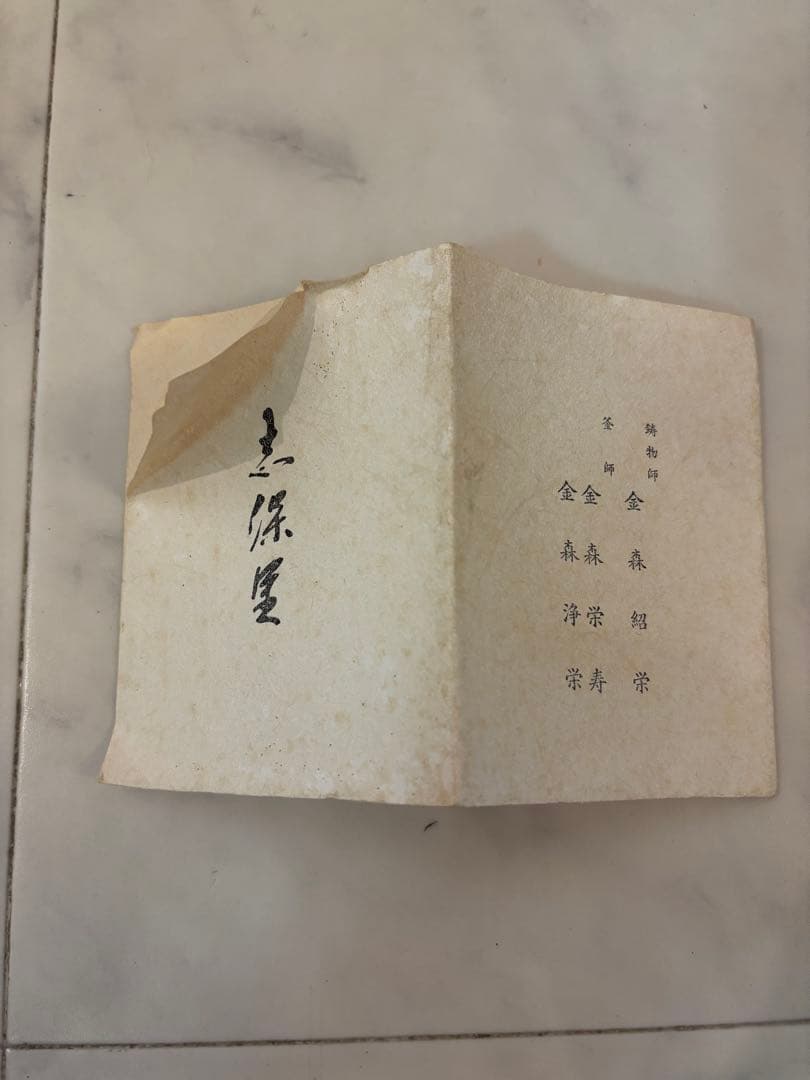 鋳物師
金森紹栄
釜師
金森栄寿
金森浄栄
志保里